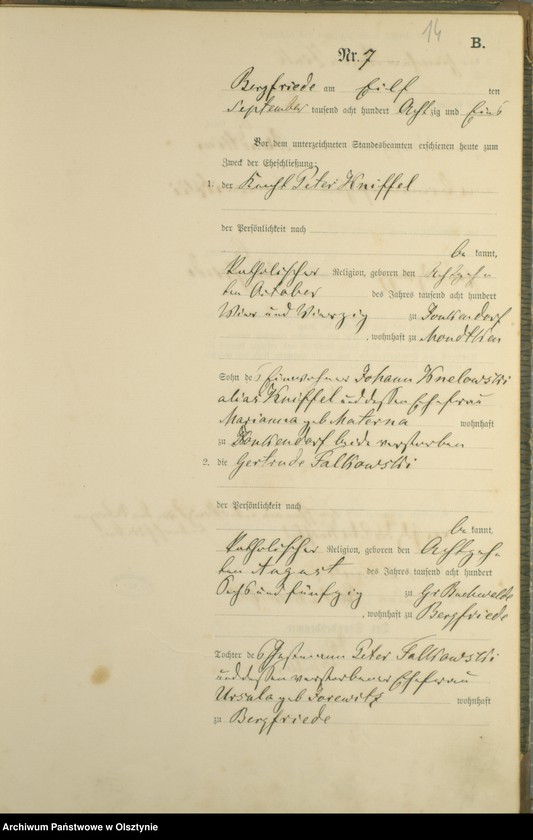 14
B.
Nr. 7
Bergfriede am Eilf ten
September tausend acht hundert Achtzig und Eins
Vor dem unterzeichneten Standesbeamten erschienen heute zum
Zweck der Eheschließung:
1. der Knecht Peter Kniffel
der Persönlichkeit nach
be kannt,
Katholischer Religion, geboren den Achtzehn
ten October des Jahres tausend acht hundert
Vier und Vierzig zu Jonkendorf
, wohnhaft zu Mondtken
Sohn des Einwohner Johann Knelowski
alias Kniffel und dessen Ehefrau
Marianna geb Materna wohnhaft
zu Jonkendorf beide verstorben
2. die Gertrude Falkowski
der Persönlichkeit nach
be kannt,
Katholischer Religion, geboren den Achtzehn
ten August des Jahres tausend acht hundert
Sechs und fünfzig zu Gr Buchwalde
, wohnhaft zu Bergfriede
Tochter des Peter Falkowski
und dessen verstorbener Ehefrau
Ursula geb wohnhaft
zu Bergfriede
Archiwum Państwowe w Olsztynie